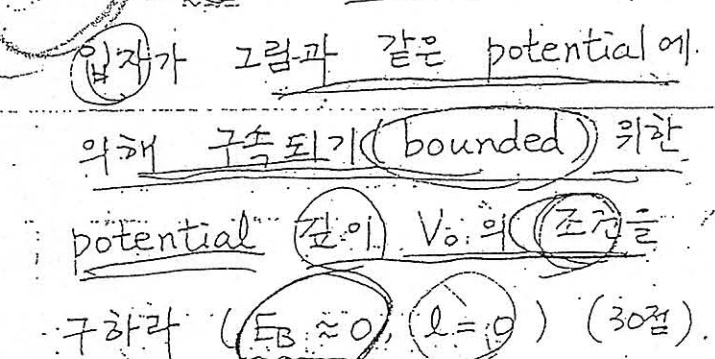 입자가 그림과 같은 potential에.
의해 구속되기(bounded) 위한
potential 깊이 V₀의 조건을
구하라 (E_B ≈ 0, l = 0) (30점).